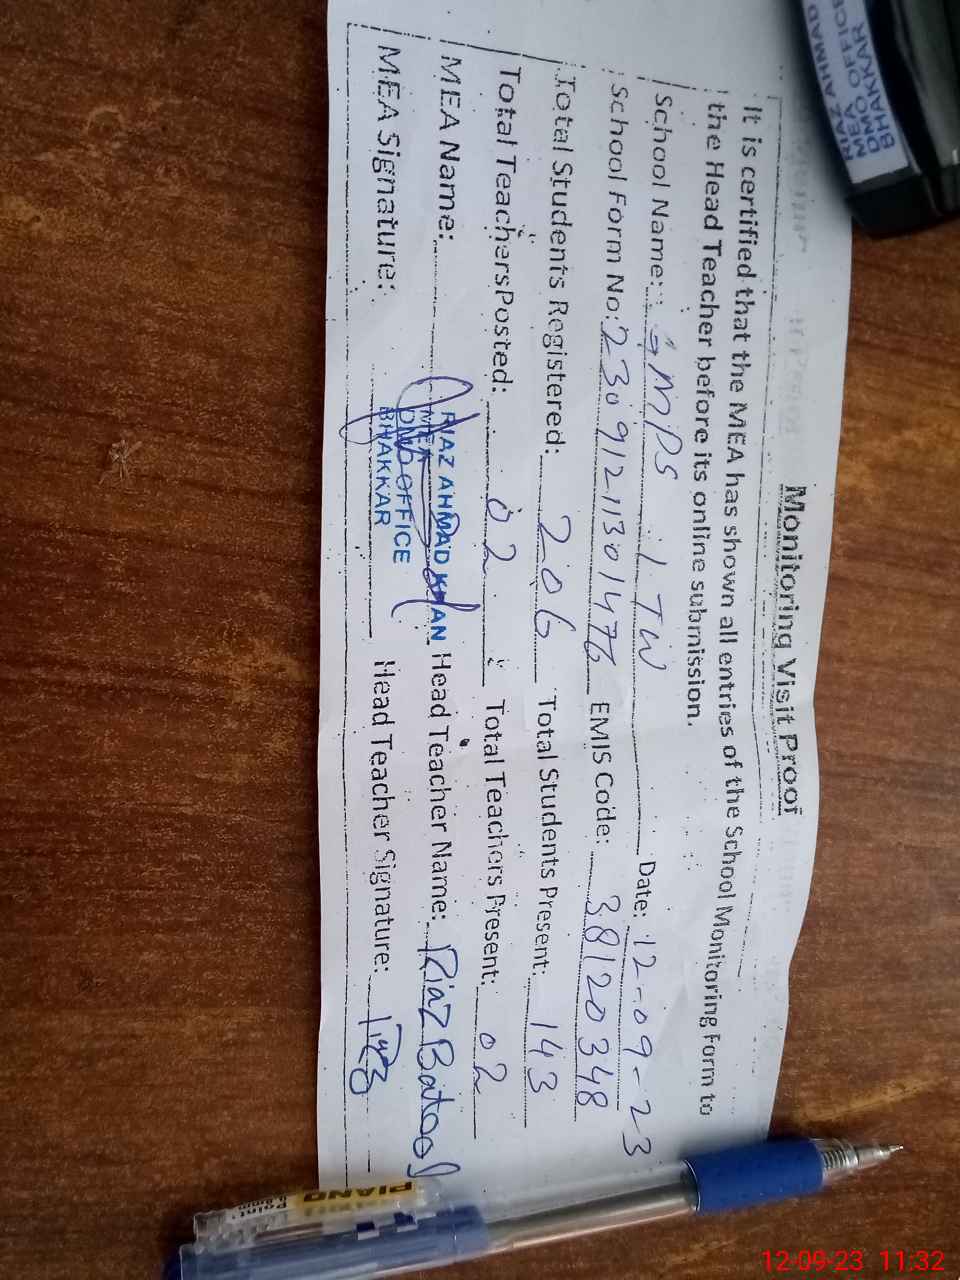 Monitoring Visit Proof
It is certified that the MEA has shown all entries of the School Monitoring Form to
the Head Teacher before its online submission.
School Name: GMPS 1 TW Date: 12-09-23
School Form No: EMIS Code: 38120348
Total Students Registered: 206 Total Students Present: 143
Total Teachers Posted: 02 Total Teachers Present: 02
MEA Name: RIAZ AHMAD KHAN Head Teacher Name: Riaz Batool
MEA
DMO OFFICE
BHAKKAR
MEA Signature: Head Teacher Signature:
RIAZ AHMAD
MEA
DMO OFFICE
BHAKKAR
PIANO
Point
0.8mm
12-09-23 11:32